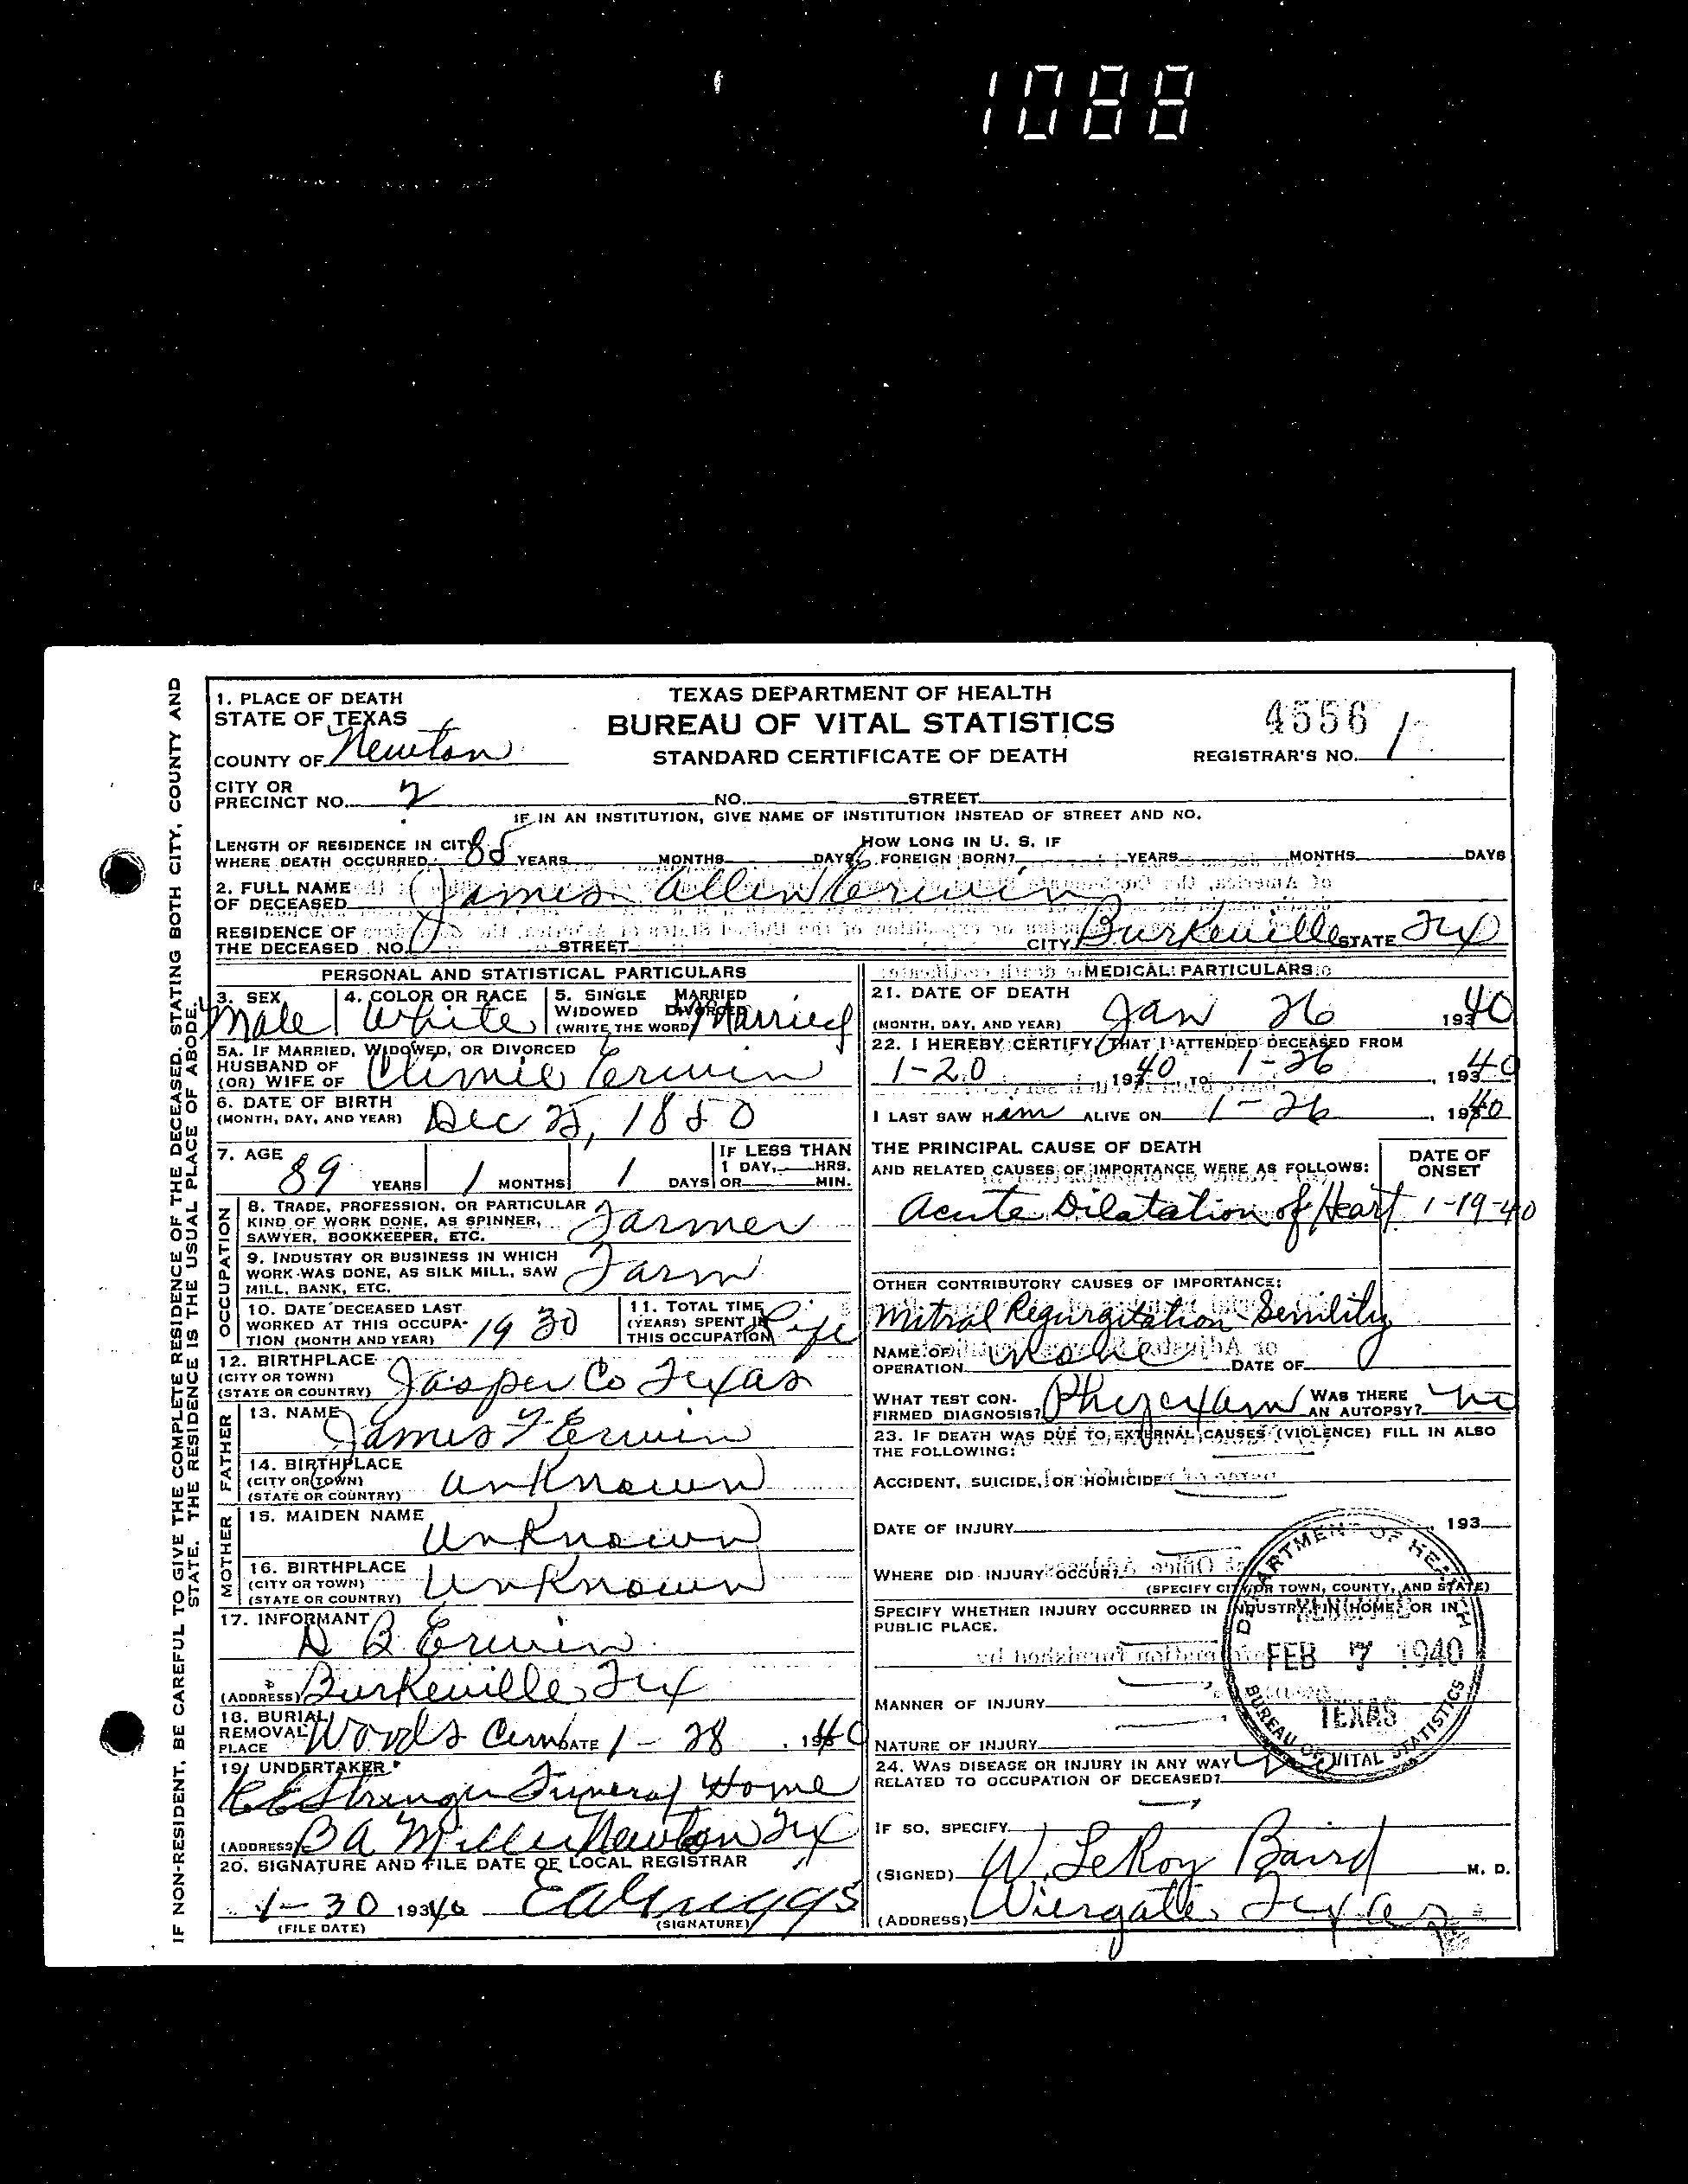 1088
IF NON-RESIDENT, BE CAREFUL TO GIVE THE COMPLETE RESIDENCE OF THE DECEASED, STATING BOTH CITY, COUNTY AND
STATE. THE RESIDENCE IS THE USUAL PLACE OF ABODE.
1. PLACE OF DEATH
STATE OF TEXAS
COUNTY OF Newton
TEXAS DEPARTMENT OF HEALTH
BUREAU OF VITAL STATISTICS
STANDARD CERTIFICATE OF DEATH
4556
REGISTRAR'S NO. 1
CITY OR
PRECINCT NO. 2 NO. STREET
IF IN AN INSTITUTION, GIVE NAME OF INSTITUTION INSTEAD OF STREET AND NO.
LENGTH OF RESIDENCE IN CITY
WHERE DEATH OCCURRED 85 YEARS MONTHS DAYS
HOW LONG IN U. S. IF
FOREIGN BORN? YEARS MONTHS DAYS
2. FULL NAME
OF DECEASED James Allen Erwin
RESIDENCE OF
THE DECEASED NO. STREET CITY Burkeville STATE Tex
PERSONAL AND STATISTICAL PARTICULARS
3. SEX
Male
4. COLOR OR RACE
White
5. SINGLE MARRIED
WIDOWED DIVORCED
(WRITE THE WORD) Married
5A. IF MARRIED, WIDOWED, OR DIVORCED
HUSBAND OF
(OR) WIFE OF Climie Erwin
6. DATE OF BIRTH
(MONTH, DAY, AND YEAR) Dec 25, 1850
7. AGE
89 YEARS 1 MONTHS 1 DAYS
IF LESS THAN
1 DAY, HRS.
OR MIN.
OCCUPATION
8. TRADE, PROFESSION, OR PARTICULAR
KIND OF WORK DONE, AS SPINNER,
SAWYER, BOOKKEEPER, ETC. Farmer
9. INDUSTRY OR BUSINESS IN WHICH
WORK WAS DONE, AS SILK MILL, SAW
MILL, BANK, ETC. Farm
10. DATE DECEASED LAST
WORKED AT THIS OCCUPA-
TION (MONTH AND YEAR) 1930
11. TOTAL TIME
(YEARS) SPENT IN
THIS OCCUPATION Life
12. BIRTHPLACE
(CITY OR TOWN)
(STATE OR COUNTRY) Jasper Co Texas
FATHER
13. NAME James F Erwin
14. BIRTHPLACE
(CITY OR TOWN)
(STATE OR COUNTRY) unknown
MOTHER
15. MAIDEN NAME Unknown
16. BIRTHPLACE
(CITY OR TOWN)
(STATE OR COUNTRY) Unknown
17. INFORMANT
D B Erwin
(ADDRESS) Burkeville Tex
18. BURIAL
REMOVAL
PLACE Woods Cem DATE 1-28, 1940
19. UNDERTAKER
Stringer Funeral Home
(ADDRESS) B A Miller Newton Tex
20. SIGNATURE AND FILE DATE OF LOCAL REGISTRAR
1-30 1940 E A Griggs
(FILE DATE) (SIGNATURE)
MEDICAL PARTICULARS
21. DATE OF DEATH
(MONTH, DAY, AND YEAR) Jan 26 1940
22. I HEREBY CERTIFY THAT I ATTENDED DECEASED FROM
1-20 1940 TO 1-26, 1940
I LAST SAW Him ALIVE ON 1-26, 1940
THE PRINCIPAL CAUSE OF DEATH
AND RELATED CAUSES OF IMPORTANCE WERE AS FOLLOWS:
DATE OF
ONSET
Acute Dilatation of Heart 1-19-40
OTHER CONTRIBUTORY CAUSES OF IMPORTANCE:
Mitral Regurgitation - Senility
NAME OF
OPERATION None DATE OF
WHAT TEST CON-
FIRMED DIAGNOSIS? Phy exam
WAS THERE
AN AUTOPSY? no
23. IF DEATH WAS DUE TO EXTERNAL CAUSES (VIOLENCE) FILL IN ALSO
THE FOLLOWING:
ACCIDENT, SUICIDE, OR HOMICIDE
DATE OF INJURY , 193
WHERE DID INJURY OCCUR?
(SPECIFY CITY OR TOWN, COUNTY, AND STATE)
SPECIFY WHETHER INJURY OCCURRED IN INDUSTRY, IN HOME, OR IN
PUBLIC PLACE.
MANNER OF INJURY
NATURE OF INJURY
24. WAS DISEASE OR INJURY IN ANY WAY
RELATED TO OCCUPATION OF DECEASED? No
IF SO, SPECIFY
(SIGNED) W. LeRoy Baird M. D.
(ADDRESS) Wiergate, Texas
DEPARTMENT OF HEALTH
RECEIVED
FEB 7 1940
TEXAS
BUREAU OF VITAL STATISTICS